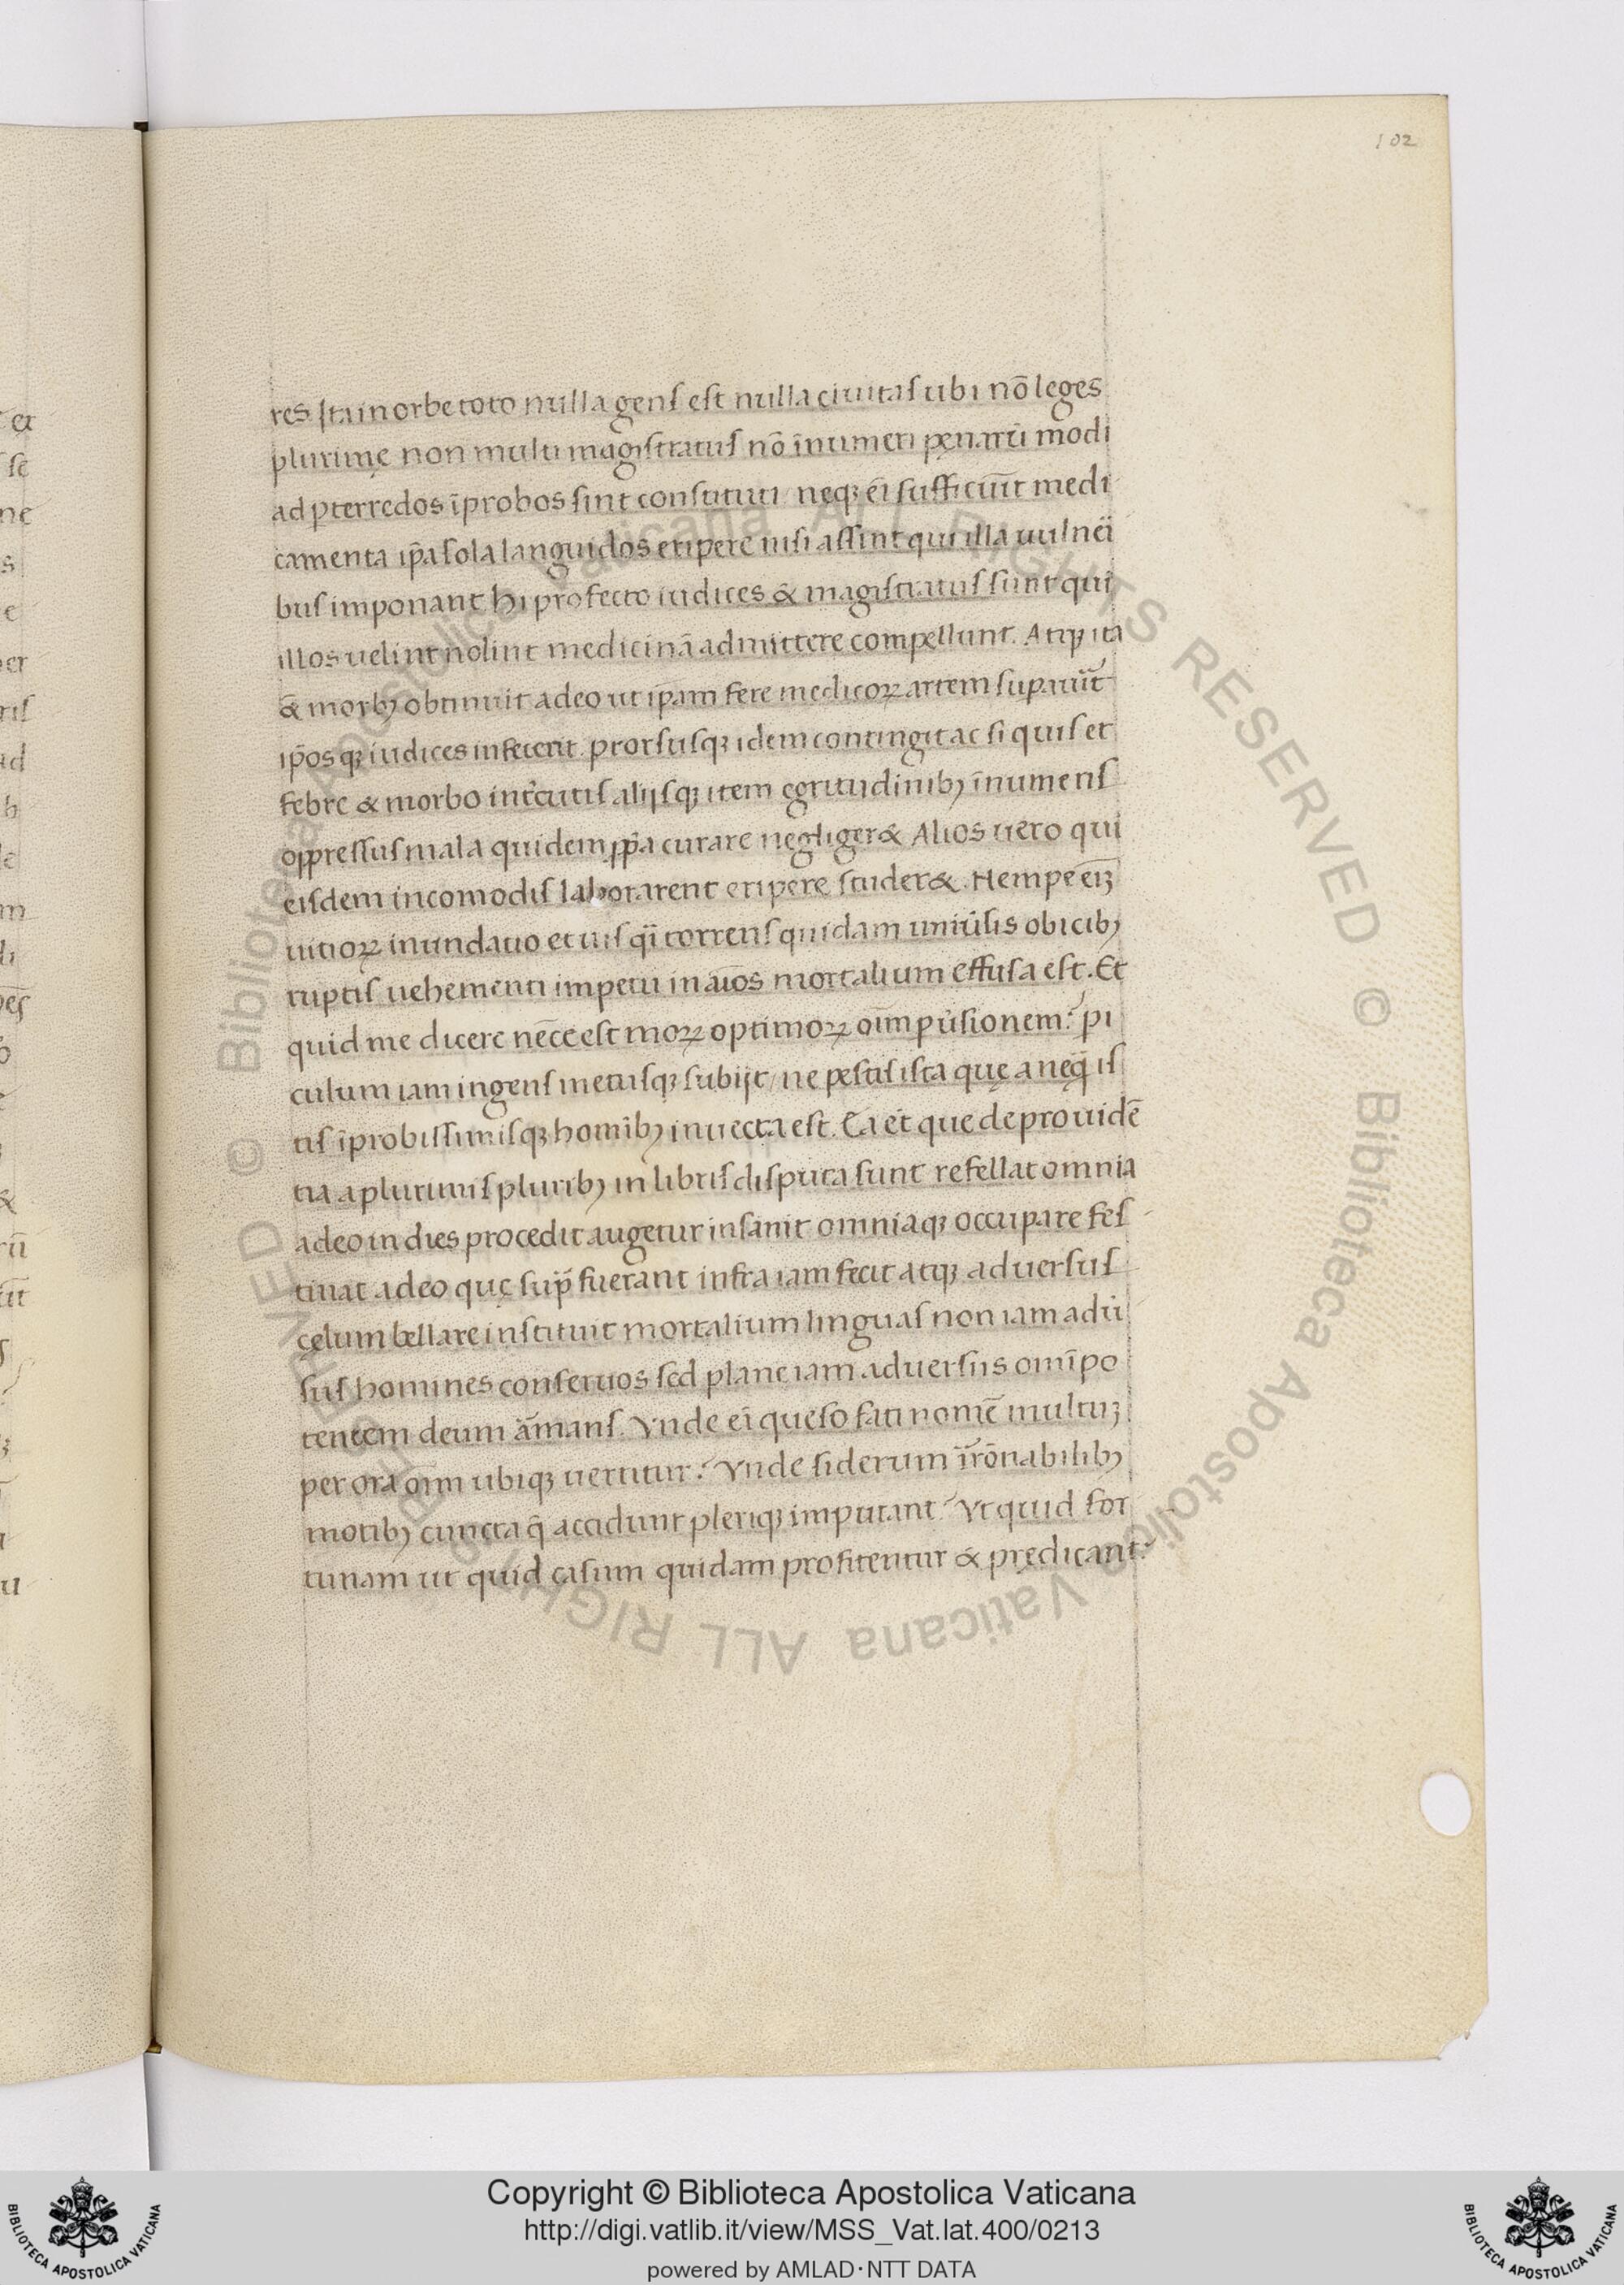 102
res. Ita in orbe toto nulla gens est nulla ciuitas ubi nō leges
plurimę non multi magistratus nō īnumeri pęnarū modi
ad pterredos īprobos sint constituti / neqꝫ eī sufficiūt medi
camenta ip̄a sola languidos eripere nisi assint qui illa uulneī
bus imponant hi profecto iudices & magistratus sunt qui
illos uelint nolint medicinā admittere compellunt. Atqꝫ ita
& morbꝫ obtinuit adeo ut ip̄am fere medicoꝝ artem supauūt
ip̄osqꝫ iudices infecerit. prorsusqꝫ idem contingit ac si quis et
febre & morbo int̄cutis alijsqꝫ item egritudinibꝫ īnumeris
oppressus mala quidem ꝓpa curare negliger& Alios uero qui
eisdem incomodis laborarent eripere studer&. Nempe eiꝫ
uitioꝝ inundatio et uis qī torrens quidam uniūsis obicibꝫ
ruptis uehementi impetu in aīos mortalium effusa est. Et
quid me dicere nēce est moꝝ optimoꝝ oīm pūsionem? pi
culum iam ingens metusqꝫ subijt / ne pestis ista quę a neq̄ is
tis īprobissimisqꝫ homībꝫ inuecta est. Ea et que de prouidē
tia a plurimis pluribꝫ in libris disputa sunt refellat omnia
adeo in dies procedit augetur insanit omniaqꝫ occupare fes
tinat adeo quę sup̄ fuerant infra iam fecit atqꝫ aduersus
cęlum bellare instituit mortalium linguas non iam adū
sus homines conseruos sed plane iam aduersus omīpo
tentem deum āmans. Vnde eī queso fati nomē multuꝫ
per ora oīm ubiqꝫ uertitur? Vnde siderum īrōnabilibꝫ
motibꝫ cuncta q̄ accidunt pleriqꝫ imputant? Vt quid for
tunam ut quid casum quidam profitentur & prędicant?
© Biblioteca Apostolica Vaticana ALL RIGHTS RESERVED © Biblioteca Apostolica Vaticana ALL RIGHTS RESERVED
Copyright © Biblioteca Apostolica Vaticana
http://digi.vatlib.it/view/MSS_Vat.lat.400/0213
powered by AMLAD·NTT DATA
BIBLIOTECA APOSTOLICA VATICANA
BIBLIOTECA APOSTOLICA VATICANA